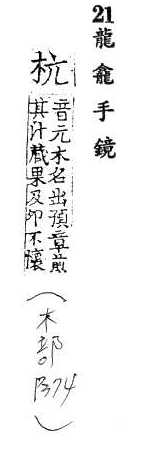 21龍龕手鏡
杭
音元木名出預章煎
其汁藏果及卵不壞
(木部 P374)